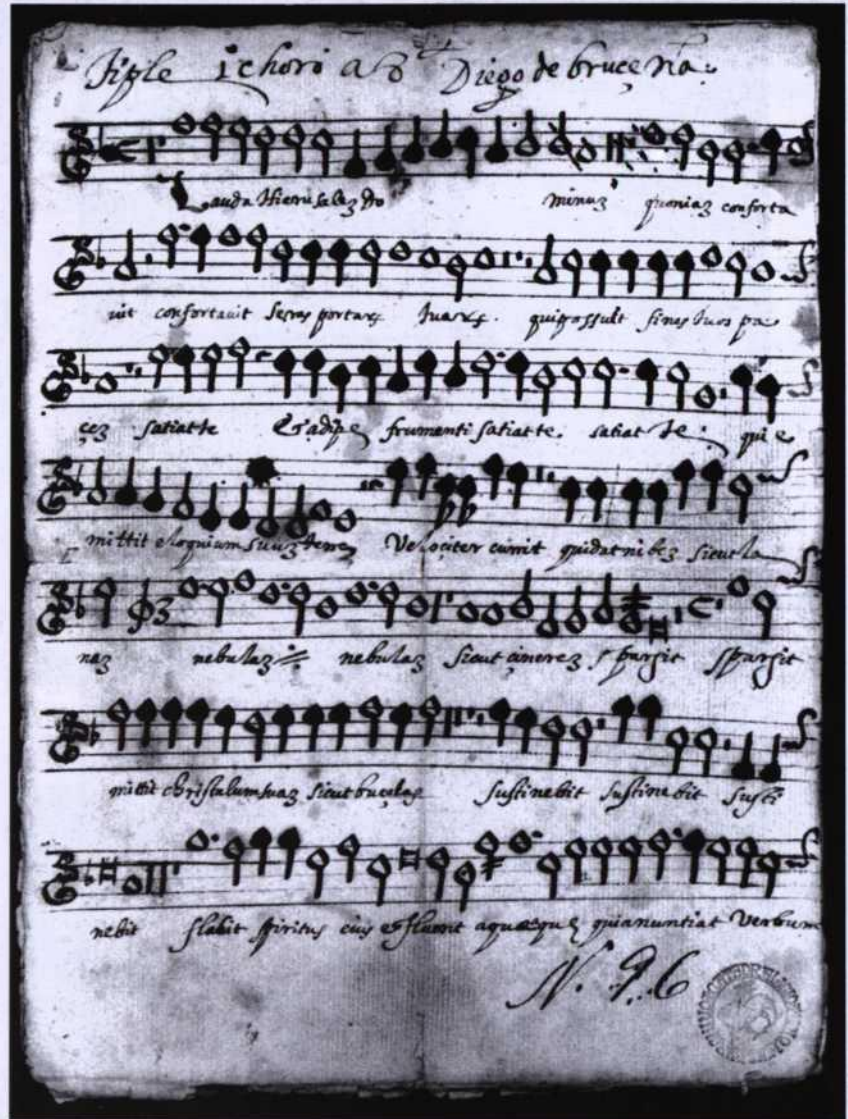 Tiple 1 chori a 8 Diego de bruceña.
Lauda Hierusalez do minuz quoniaz conforta
uit confortauit seras portarz tuarz. qui possuit fines tuos pa
cez satiat te Et adipe frumenti satiat te. satiat te. qui e
mittit eloquium suuz terre Velociter currit qui dat nibez sicut la
naz nebulaz nebulaz sicut cinerez spargit spargit
mittit christalum suaz sicut bucelas sustinebit sustinebit susti
nebit flabit spiritus eius et fluent aquæ qui anuntiat Verbum
N. 96